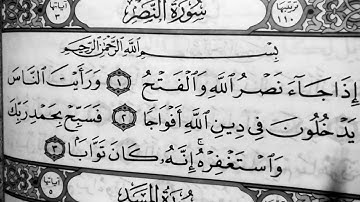 ترتيبها ١١٠ سُورَةُ النَّصْرِ آياتها ٣
بِسْمِ اللَّهِ الرَّحْمَٰنِ الرَّحِيمِ
إِذَا جَاءَ نَصْرُ اللَّهِ وَالْفَتْحُ ١ وَرَأَيْتَ النَّاسَ
يَدْخُلُونَ فِي دِينِ اللَّهِ أَفْوَاجًا ٢ فَسَبِّحْ بِحَمْدِ رَبِّكَ
وَاسْتَغْفِرْهُ إِنَّهُ كَانَ تَوَّابًا ٣
سُورَةُ المَسَد آياتها ٥